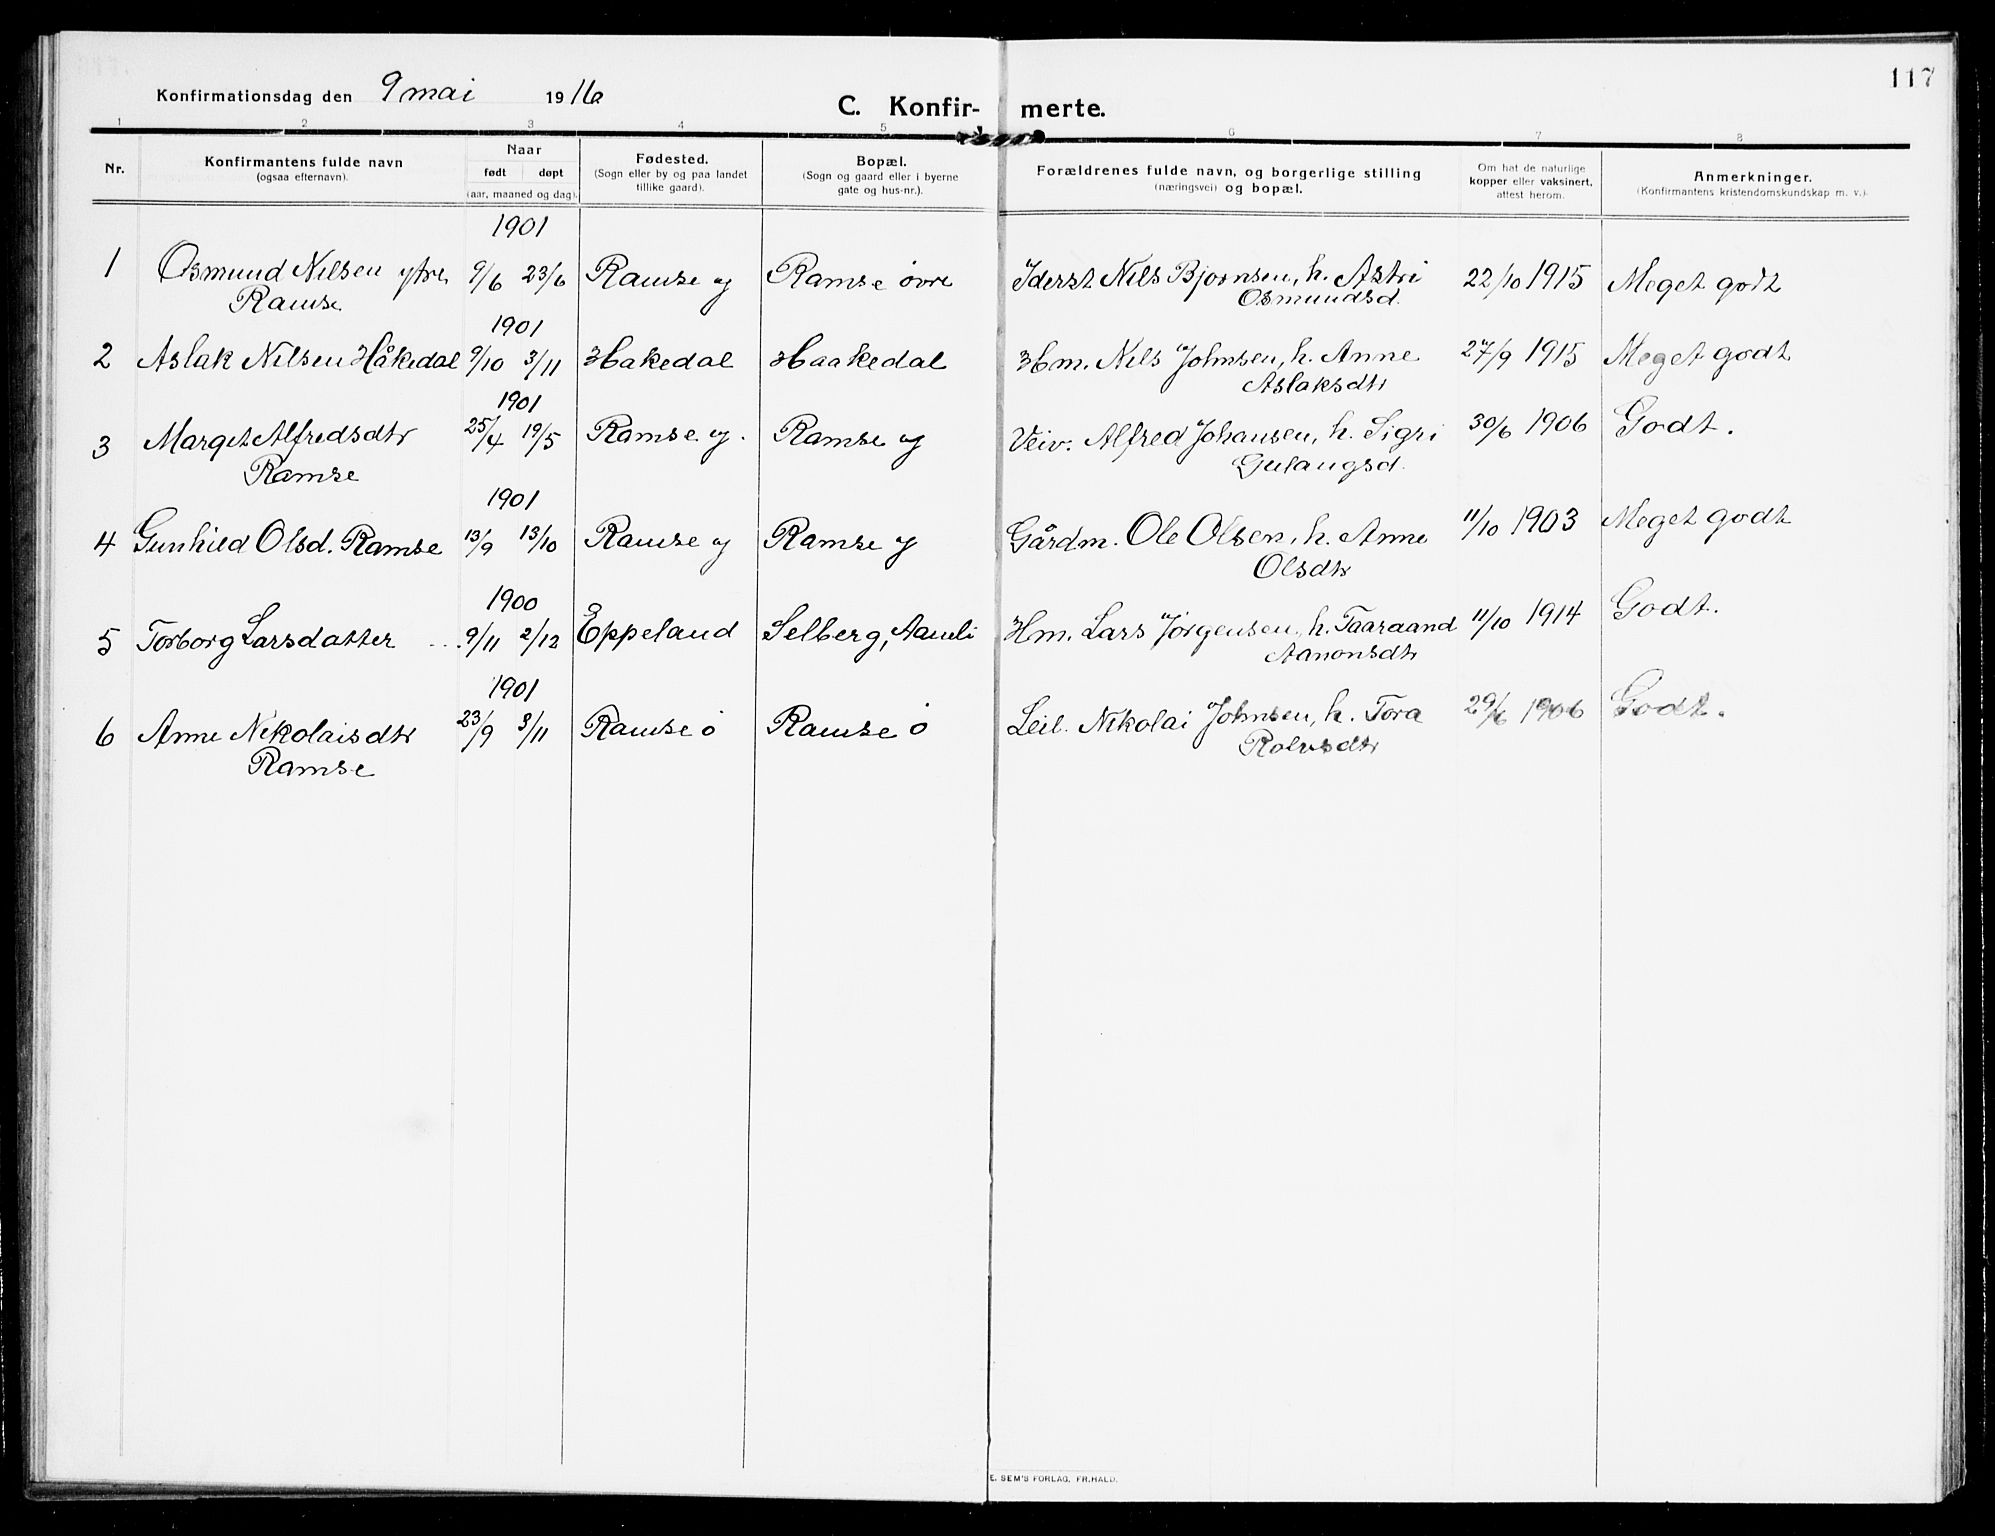 117
Konfirmationsdag den 9 mai 1916
C. Konfirmerte.
1 2 3 4 5 6 7 8
Nr.
Konfirmantens fulde navn
(ogsaa efternavn).
Naar
født døpt
(aar, maaned og dag).
Fødested.
(Sogn eller by og paa landet
tillike gaard).
Bopæl.
(Sogn og gaard eller i byerne
gate og hus-nr.).
Forældrenes fulde navn, og borgerlige stilling
(næringsvei) og bopæl.
Om hat de naturlige
kopper eller vaksinert,
attest herom.
Anmerkninger.
(Konfirmantens kristendomskundskap m. v.).
1901
1 Osmund Nilsen ytre 9/6 23/6 Ramse y Ramse øvre Nils Bjørnsen, h. Astri 22/10 1915 Meget godt
Ramse Osmundsd.
1901
2 Aslak Nilsen Håkedal 9/10 3/11 Hakedal Haakedal Hm. Nils Johnsen, h. Anne 27/9 1915 Meget godt
Aslaksdtr
1901
3 Marget Alfredsdtr 25/4 19/5 Ramse y. Ramse y Veiv. Alfred Johansen, h. Sigri 30/6 1906 Godt.
Ramse Gulaugsd.
1901
4 Gunhild Olsd. Ramse 13/9 13/10 Ramse y Ramse y Gårdm. Ole Olsen, h. Anne 11/10 1903 Meget godt
Olsdtr
1900
5 Torborg Larsdatter 9/11 2/12 Eppeland Selberg, Aamli Hm. Lars Jørgensen, h. Taaraand 11/10 1914 Godt.
Aanonsdtr
1901
6 Anne Nikolaisdtr 23/9 3/11 Ramse ø Ramse ø Leil. Nikolai Johnsen, h. Tora 29/6 1906 Godt.
Ramse Rolvsdtr
E. SEM'S FORLAG, FR.HALD.